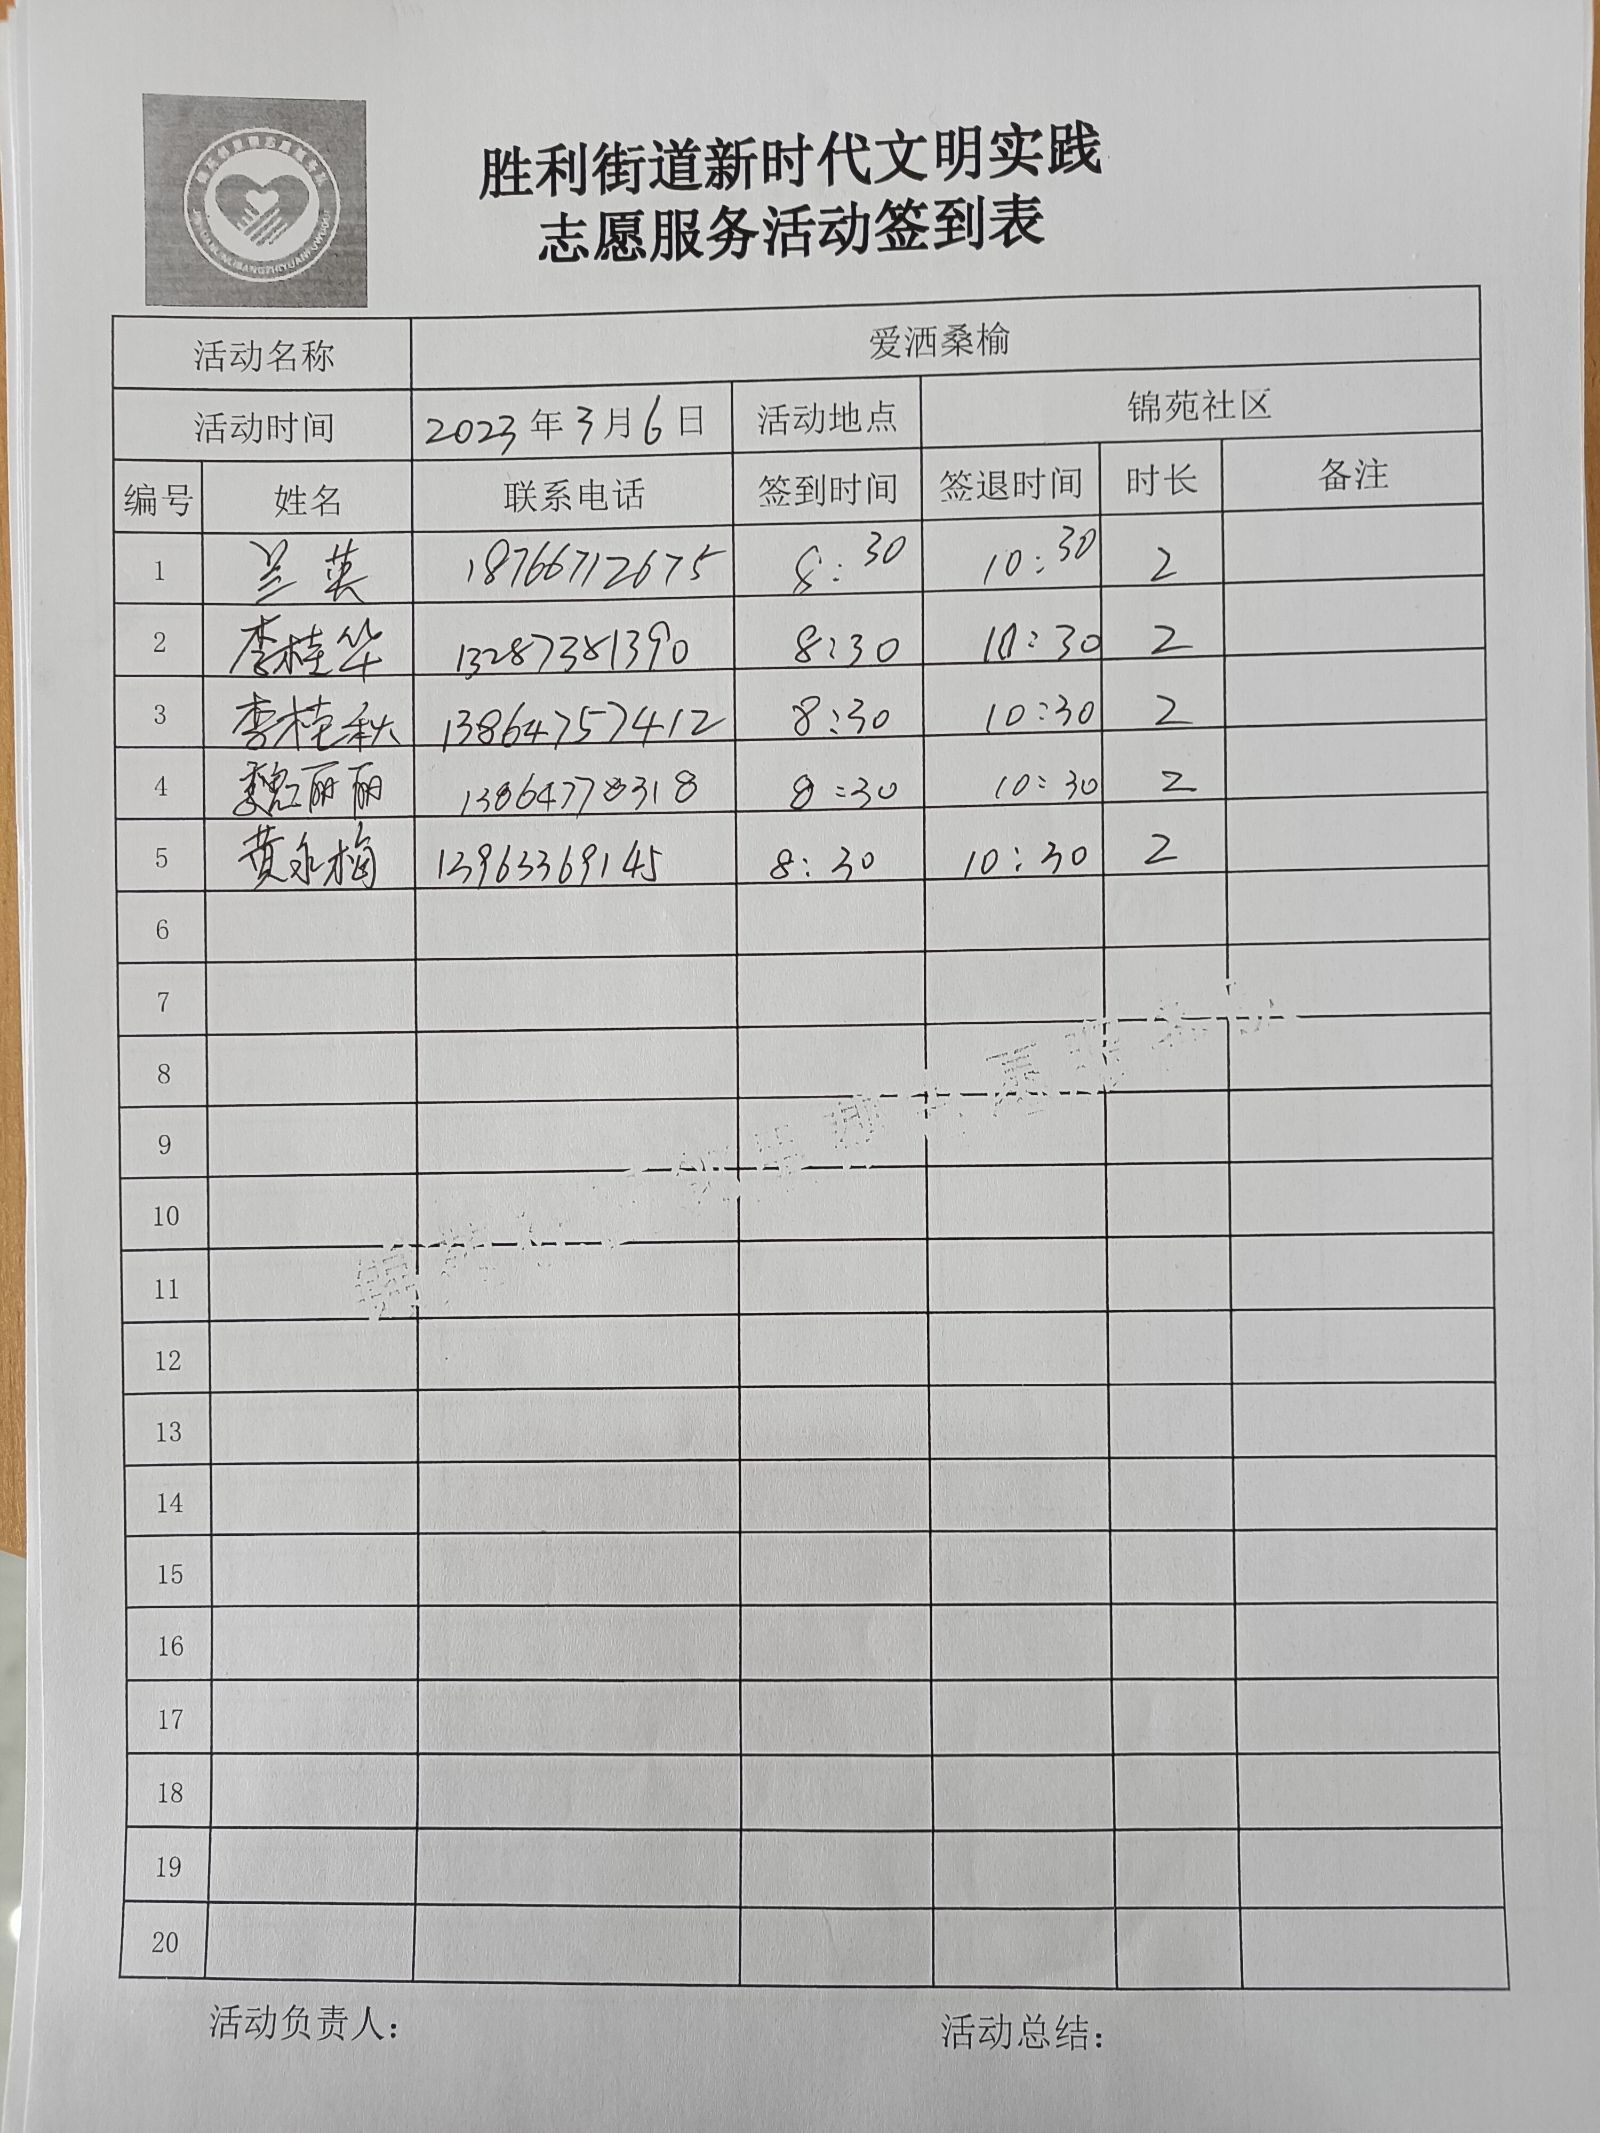 胜利街道新时代文明实践
志愿服务活动签到表
活动名称 爱洒桑榆
活动时间 2023年3月6日 活动地点 锦苑社区
编号 姓名 联系电话 签到时间 签退时间 时长 备注
1 兰英 18766712675 8:30 10:30 2
2 李桂华 13287381390 8:30 10:30 2
3 李桂秋 13864757412 8:30 10:30 2
4 魏丽丽 13864778318 8:30 10:30 2
5 黄永梅 13963369145 8:30 10:30 2
6
7
8
9
10
11
12
13
14
15
16
17
18
19
20
活动负责人: 活动总结: